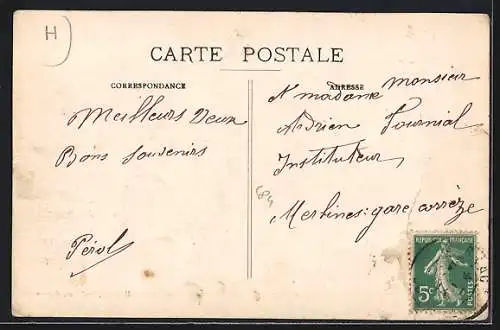 H
CARTE POSTALE
CORRESPONDANCE
Meilleurs Veux
Bons Souvenirs
Pérol
ADRESSE
Monsieur
madame
Adrien Fournial
Instituteur
Merlines: gare corrèze
RÉPUBLIQUE FRANÇAISE
5c
POSTES